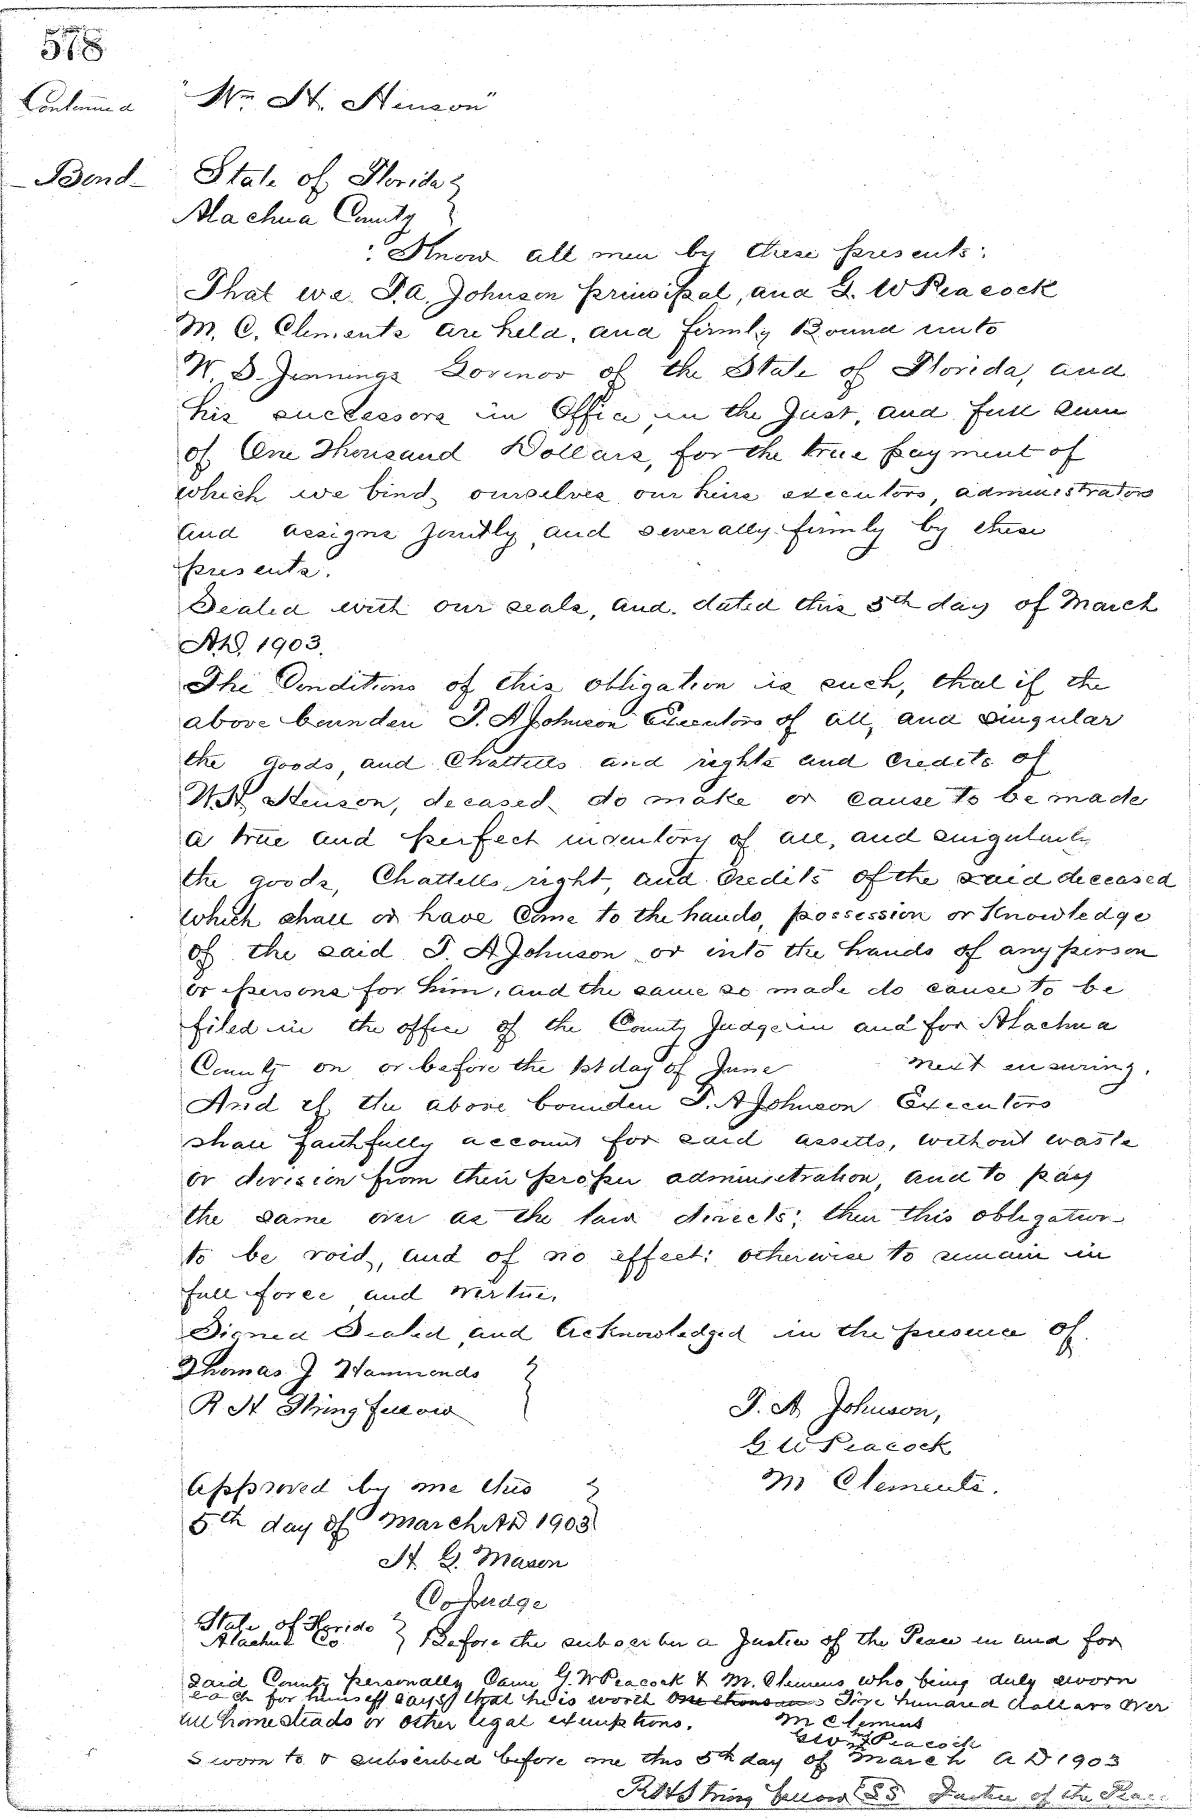 578
Continued "Wm H. Henson"
- Bond - State of Florida }
Alachua County }
: Know all men by these presents:
That we J.A. Johnson principal, and G. W Peacock
M. C. Clements are held, and firmly Bound unto
W. S. Jennings Govenor of the State of Florida, and
his successors in Office, in the Just, and full sum
of One Thousand Dollars, for the true payment of
which we bind, ourselves our heirs executors, administrators
and assigns jointly, and severally firmly by these
presents.
Sealed with our seals, and. dated this 5th day of March
A.D. 1903.
The Conditions of this obligation is such, that if the
above bounden J. A Johnson Executors of all, and singular
the goods, and Chattells and rights and Credits of
W.H. Henson, decased, do make or cause to be made
a true and perfect inventory of all, and singularly
the goods, Chattells, right, and Credits of the said deceased
which shall or have Come to the hands, possession or Knowledge
of the said J. A Johnson or into the hands of any person
or persons for him, and the same so made do cause to be
filed in the office of the County Judge in and for Alachua
County on or before the 1st day of June next ensuring.
And if, the above bounden J. A Johnson Executors
shall faithfully account for said assetts, without waste
or devision from their proper administration, and to pay
the same over as the law directs; then this obligation
to be void, and of no effect; otherwise to remain in
full force and virtue.
Signed Sealed, and Acknowledged in the presence of.
Thomas J Hammonds }
R H Stringfellow
J. A. Johnson,
G W Peacock
M Clements.
Approved by me this }
5th day of March AD 1903
H. G. Mason
Co Judge
State of Florida }
Alachua Co } Before the subscriber a Justice of the Peace in and for
said County personally Came G. W Peacock & M. Clemens who being duly sworn
each for himself says that he is worth One thousand Five hundred dollars over
all homesteads or other legal exemptions.
M Clemens
G W Peacock
Sworn to & subscribed before me this 5th day of March A D 1903
R H Stringfellow SS Justice of the Peace